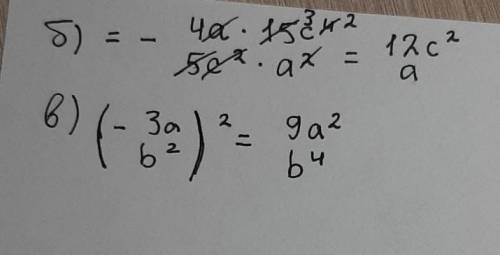 б) = - 4a · 15 3 c 4 2
5c 2 · a 2 = 12c²
a
в) (- 3a
b²)² = 9a²
b⁴